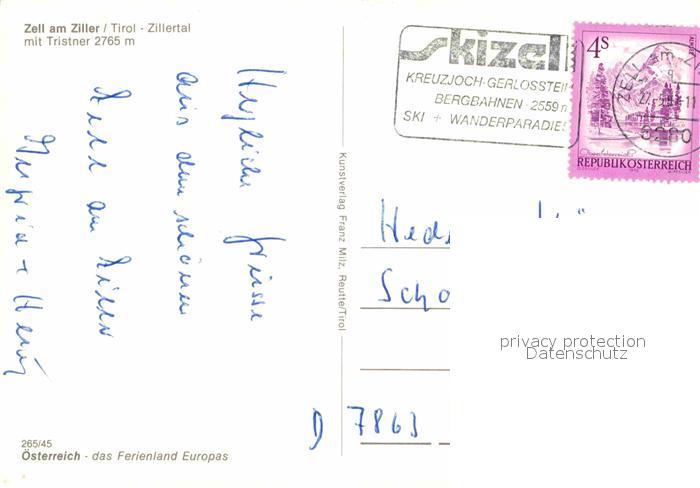 Zell am Ziller / Tirol - Zillertal
mit Tristner 2765 m
Herzliche Grüsse
aus dem schönen
Zell am Ziller
265/45
Österreich - das Ferienland Europas
Kunstverlag Franz Milz, Reutte/Tirol
skizell
KREUZJOCH-GERLOSSTEIN
BERGBAHNEN - 2559 m
SKI + WANDERPARADIES
4S
REPUBLIK ÖSTERREICH
ZELL am ZI
6280
Hed
Scho
D 7863
privacy protection
Datenschutz